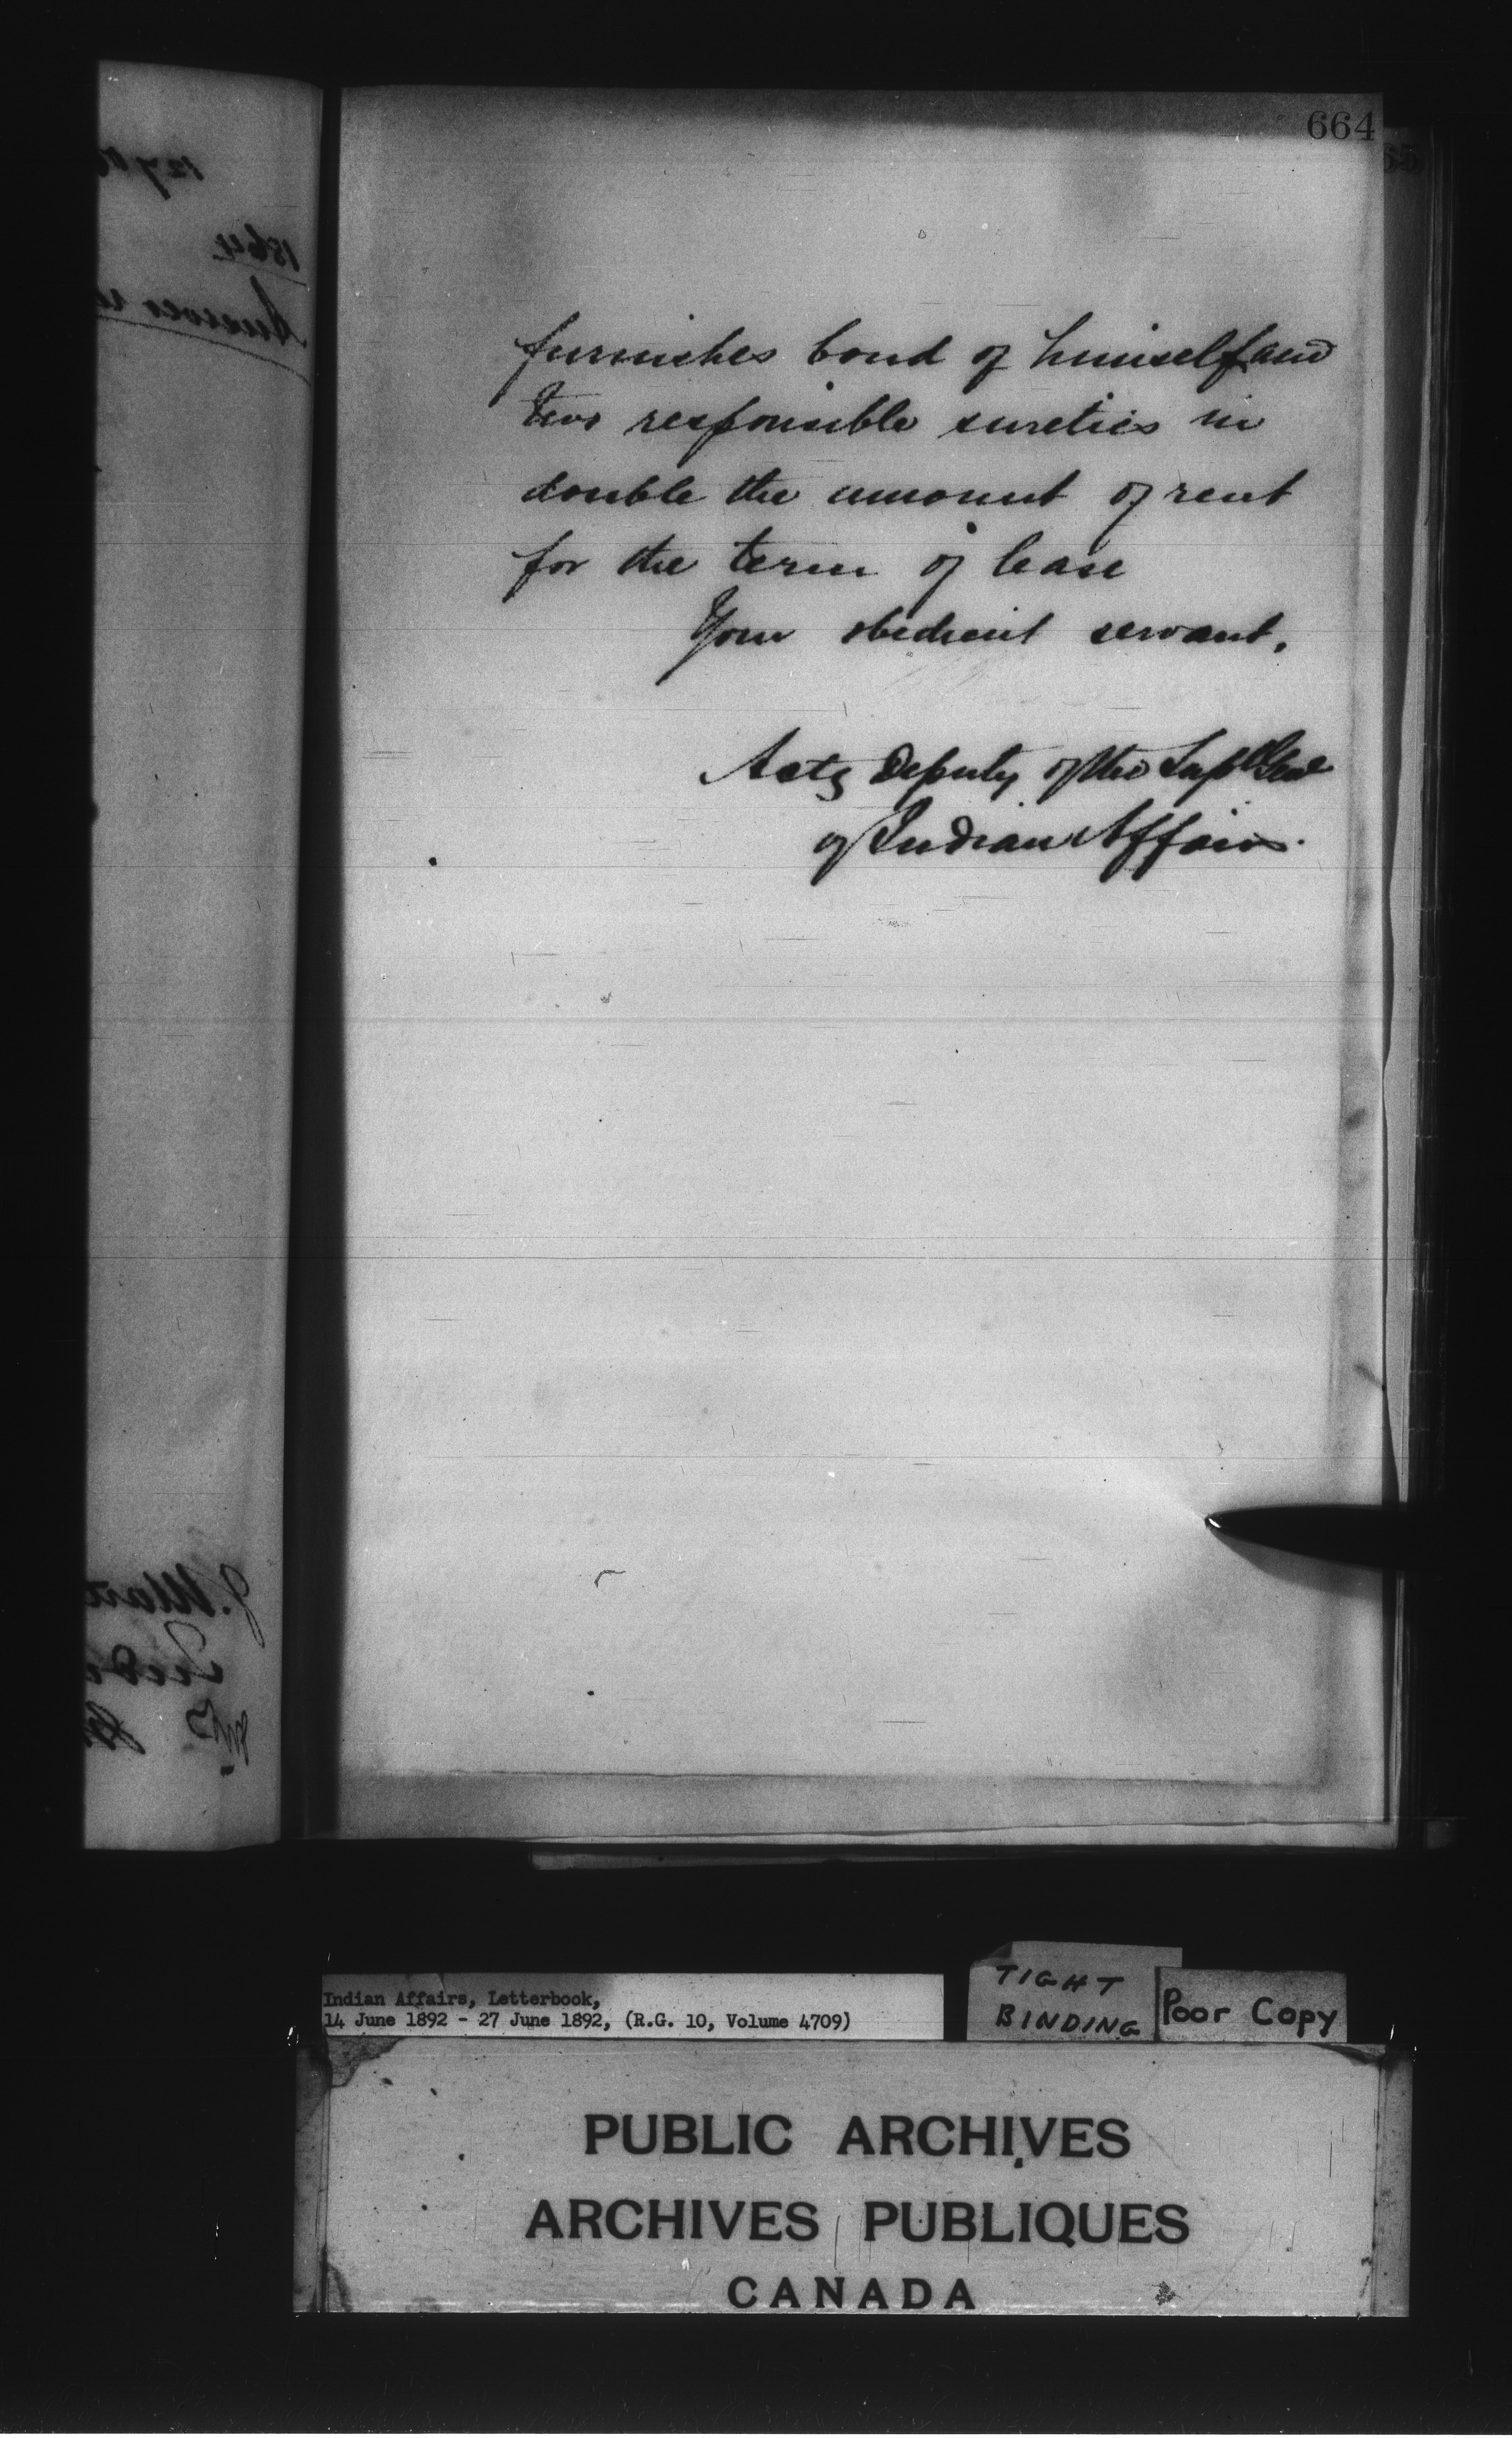 664
furnishes bond of himself and
two responsible sureties in
double the amount of rent
for the term of lease
Your obedient servant.
Actg Deputy of the Supt Genl
of Indian Affairs.
Indian Affairs, Letterbook,
14 June 1892 - 27 June 1892, (R.G. 10, Volume 4709)
TIGHT
BINDING
Poor Copy
PUBLIC ARCHIVES
ARCHIVES PUBLIQUES
CANADA